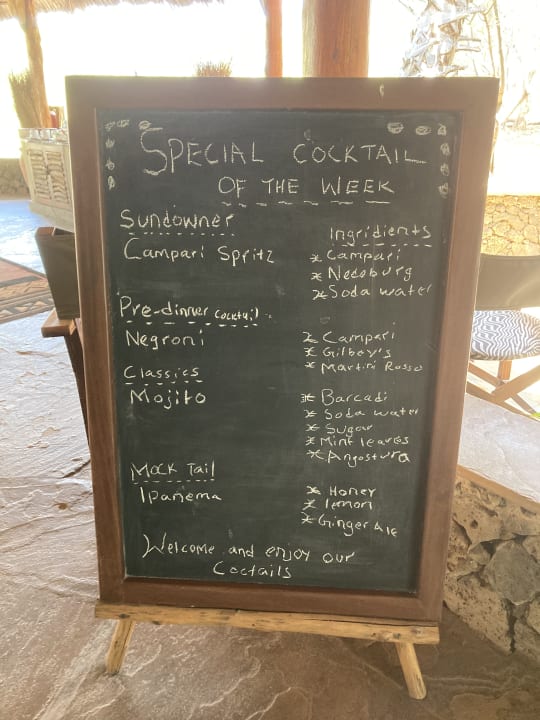 SPECIAL COCKTAIL
OF THE WEEK
Sundowner
Ingridients
Campari Spritz
* Campari
* Nedoburg
* Soda water
Pre-dinner Cocktail
Negroni
* Campari
* Gilbey's
* Martini Rosso
Classics
Mojito
* Barcadi
* Soda water
* Sugar
* Mint leaves
* Angostura
Mock Tail
Ipanema
* Honey
* lemon
* Ginger Ale
Welcome and enjoy our
Coctails